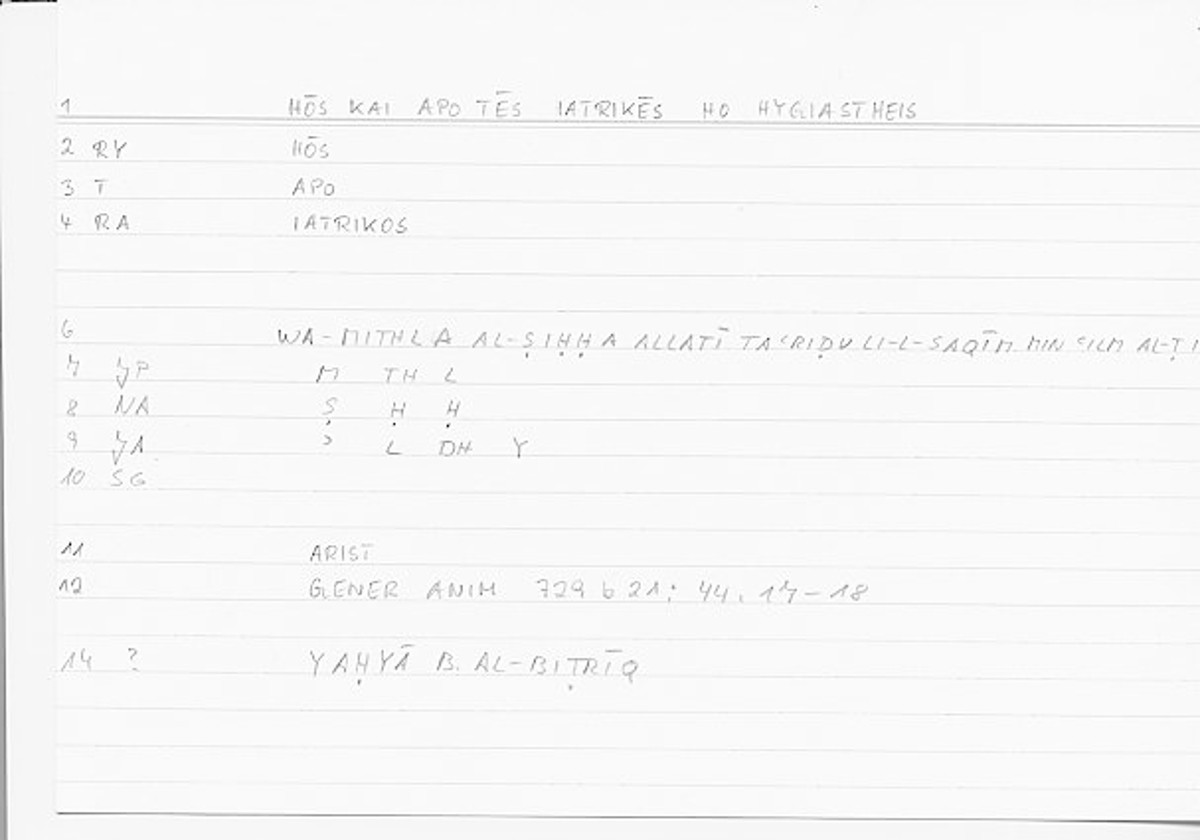 1 HŌS KAI APO TĒS IATRIKĒS HO HYGIASTHEIS
2 RY HŌS
3 T APO
4 RA IATRIKOS
6 WA-MITHLA AL-ṢIḤḤA ALLATĪ TAʿRIḌU LI-L-SAQĪM MIN ʿILM AL-ṬI
7 JP M TH L
8 NA Ṣ Ḥ Ḥ
9 JA ʾ L DH Y
10 SG
11 ARIST
12 GENER ANIM 729 b 21; 44.17-18
14 ? YAḤYĀ B. AL-BIṬRĪQ